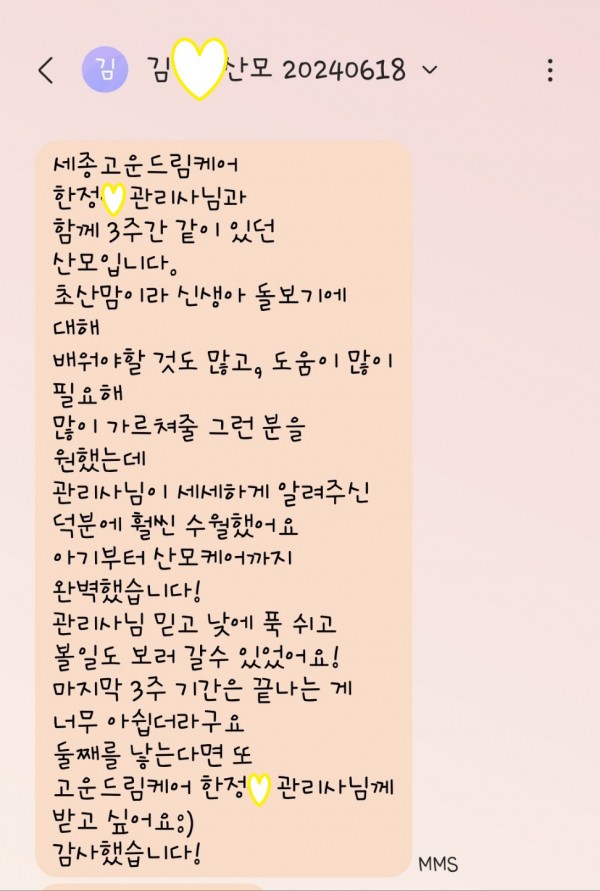 김
김 산모 20240618
세종고운드림케어
한정 관리사님과
함께 3주간 같이 있던
산모입니다.
초산맘이라 신생아 돌보기에
대해
배워야할 것도 많고, 도움이 많이
필요해
많이 가르쳐줄 그런 분을
원했는데
관리사님이 세세하게 알려주신
덕분에 훨씬 수월했어요
아기부터 산모케어까지
완벽했습니다!
관리사님 믿고 낮에 푹 쉬고
볼일도 보러 갈수 있었어요!
마지막 3주 기간은 끝나는 게
너무 아쉽더라구요
둘째를 낳는다면 또
고운드림케어 한정 관리사님께
받고 싶어요:)
감사했습니다!
MMS